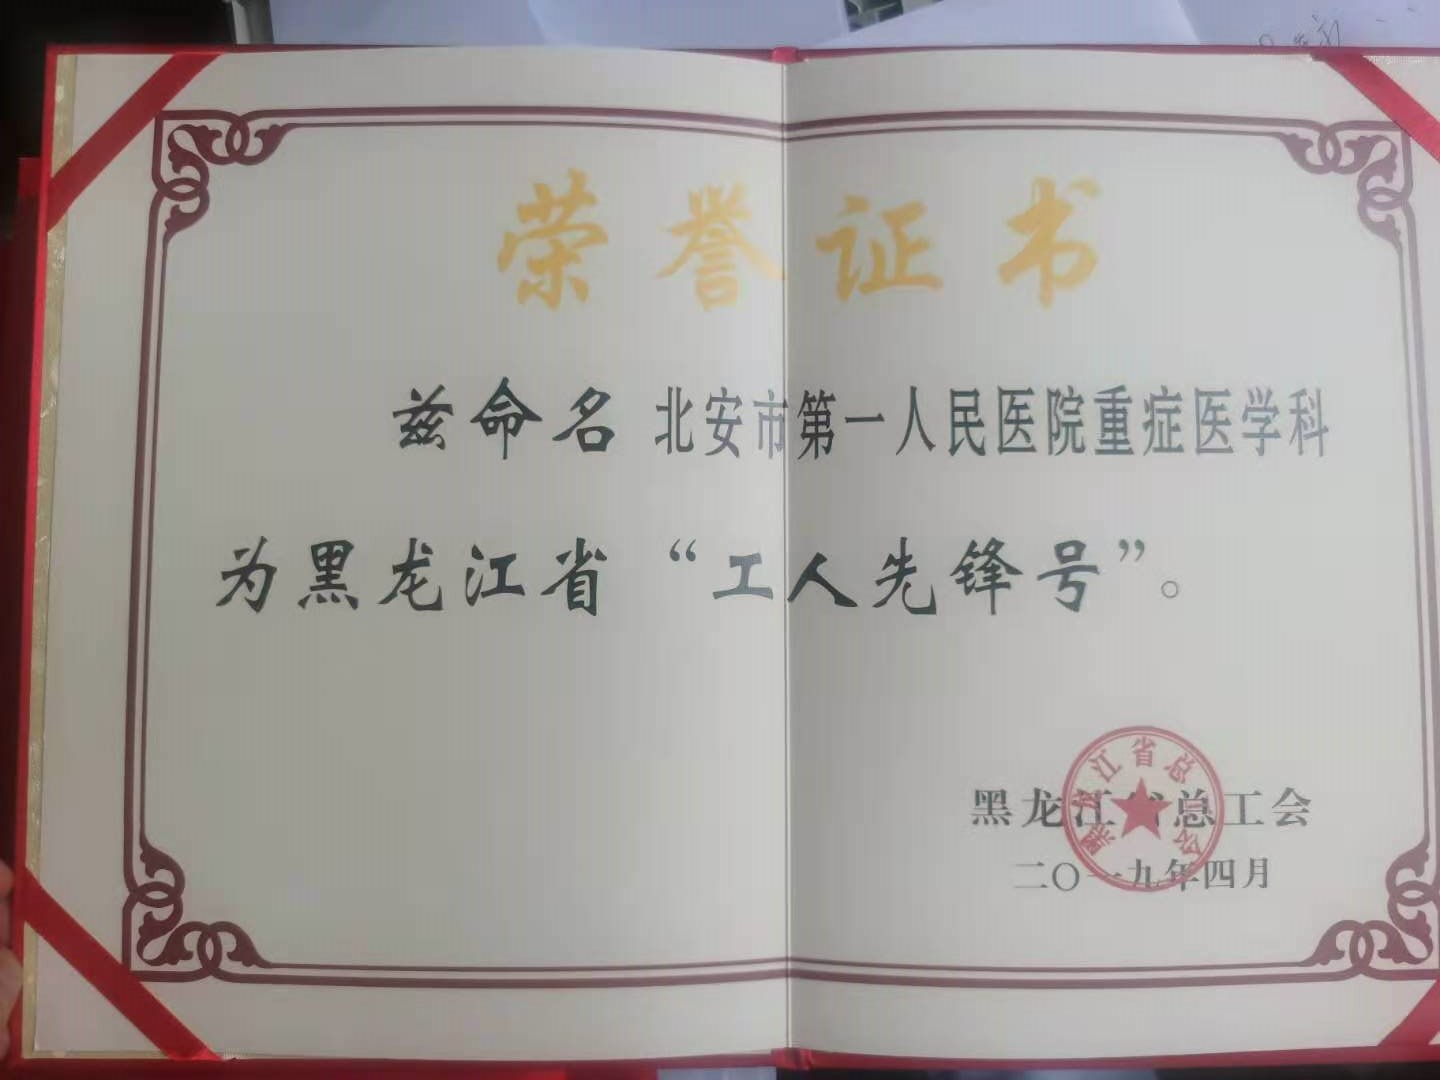 荣誉证书
兹命名北安市第一人民医院重症医学科
为黑龙江省“工人先锋号”。
黑龙江省总工会
二〇一九年四月
黑龙江省总工会